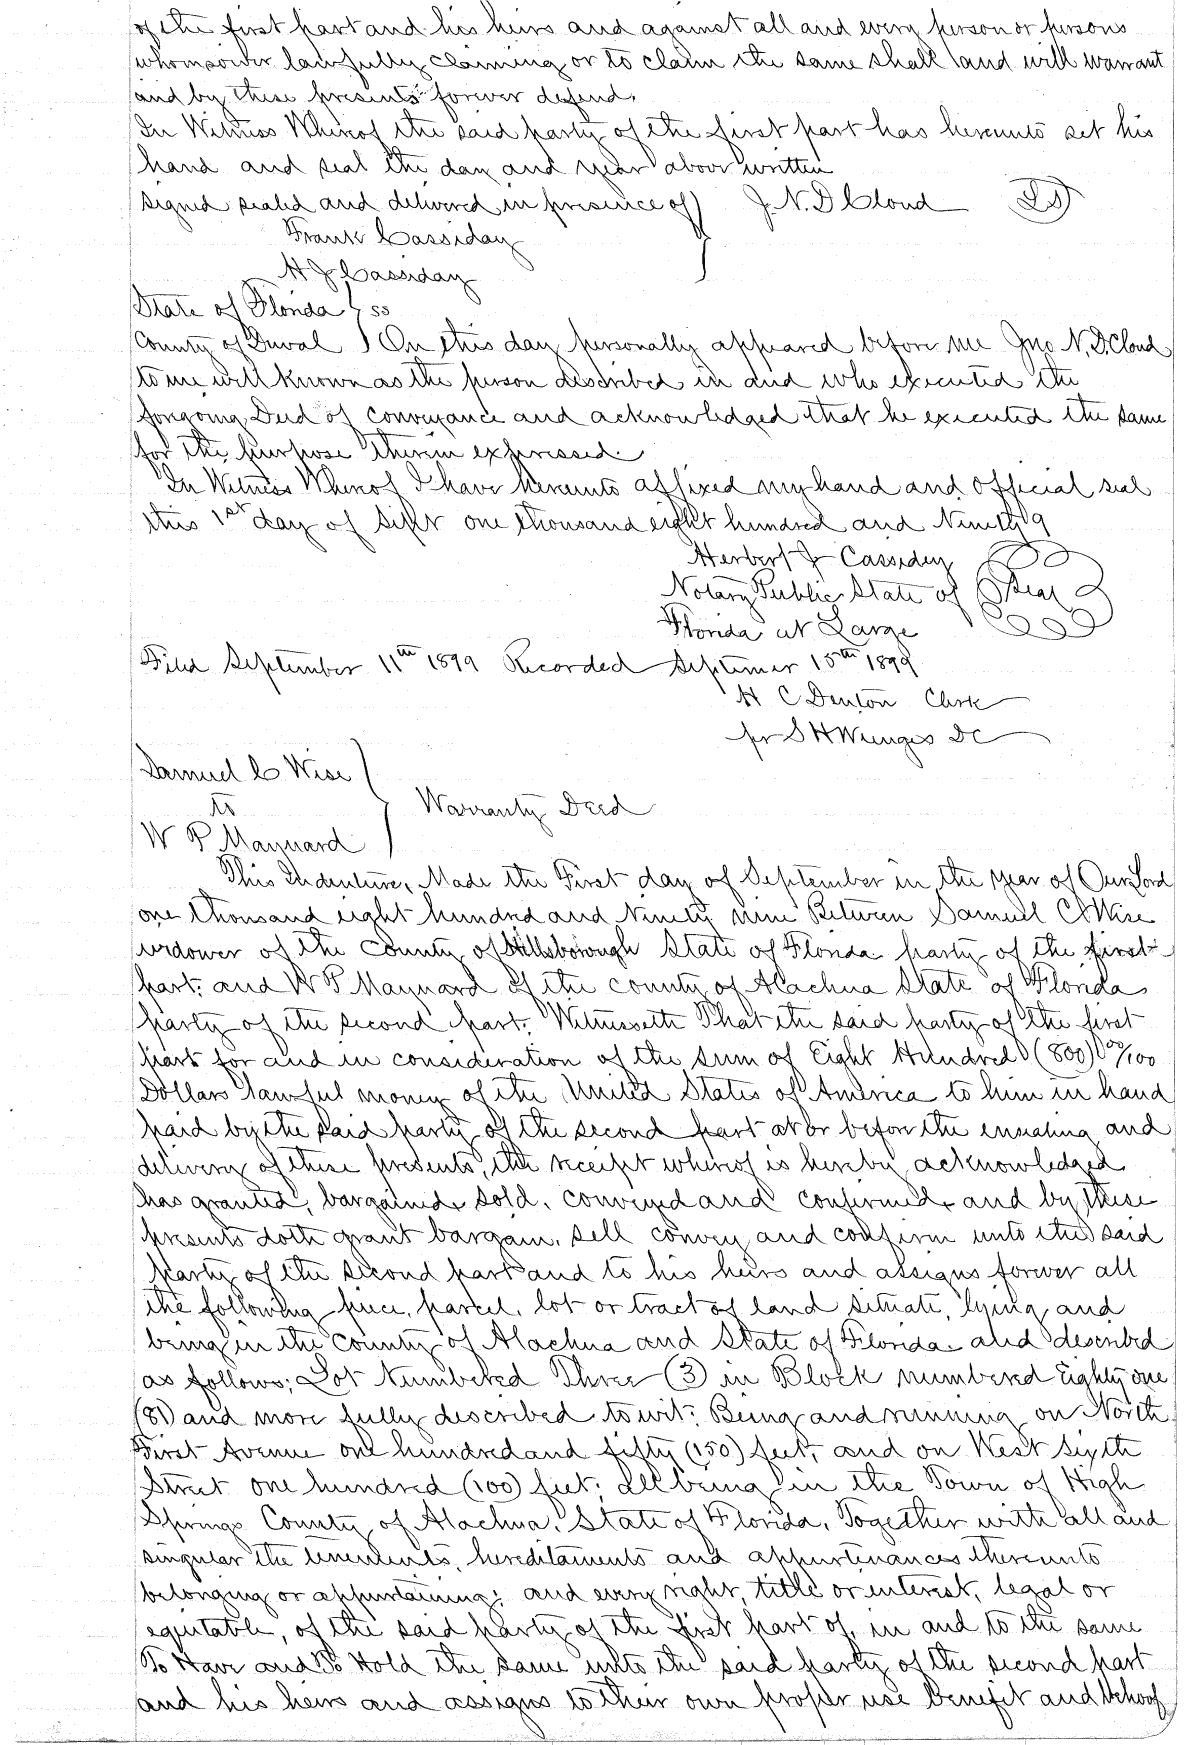 of the first part and his heirs and against all and every person or persons
whomsoever lawfully claiming or to claim the same shall and will warrant
and by these presents forever defend.
In Witness Whereof the said party of the first part has hereunto set his
hand and seal the day and year above written
signed sealed and delivered in presence of } J. N. D Cloud LS
Frank Cassiday
H J Cassiday
State of Florida } ss
County of Duval } On this day personally appeared before me Jno N. D. Cloud
to me well known as the person described in and who executed the
forgoing Deed of conveyance and acknowledged that he executed the same
for the purpose therein expressed.
In Witness Whereof I have hereunto affixed my hand and official seal
this 1st day of Sept one thousand eight hundred and Ninety 9
Herbert J Cassidey
Notary Public State of Seal
Florida at Large
Filed September 11th 1899 Recorded Septemer 15th 1899
H C Denton Clerk
pr S H Wienges DC
Samuel C Wise }
to } Warranty Deed
W P Maynard }
This Indenture, Made the First day of September in the year of Our Lord
one thousand eight hundred and Ninety nine Between Samuel C Wise
widower of the County of Hillsborough State of Florida party of the first
part; and W P Maynard of the county of Alachua State of Florida
party of the second part. Witnesseth That the said party of the first
part for and in consideration of the sum of Eight Hundred (800) 00/100
Dollars lawful money of the United States of America to him in hand
paid by the said party of the second part at or before the ensealing and
delivery of these presents, the receipt whereof is hereby acknowledged
has granted, bargained, sold, conveyed and confirmed, and by these
presents doth grant bargain, sell convey and confirm unto the said
party of the second part and to his heirs and assigns forever all
the following piece, parcel, lot or tract of land situate, lying and
being in the County of Alachua and State of Florida and described
as follows; Lot Numbered Three (3) in Block numbered Eighty one
(81) and more fully described to wit: Being and running on North
First Avenue one hundred and fifty (150) feet, and on West Sixth
Street one hundred (100) feet; all being in the Town of High
Springs County of Alachua, State of Florida, Together with all and
singular the tenements, hereditaments and appurtenances thereunto
belonging or appurtaining; and every right, title or interest, legal or
equitable, of the said party of the first part of, in and to the same
To Have and To Hold the same unto the said party of the second part
and his heirs and assigns to their own proper use benefit and behoof